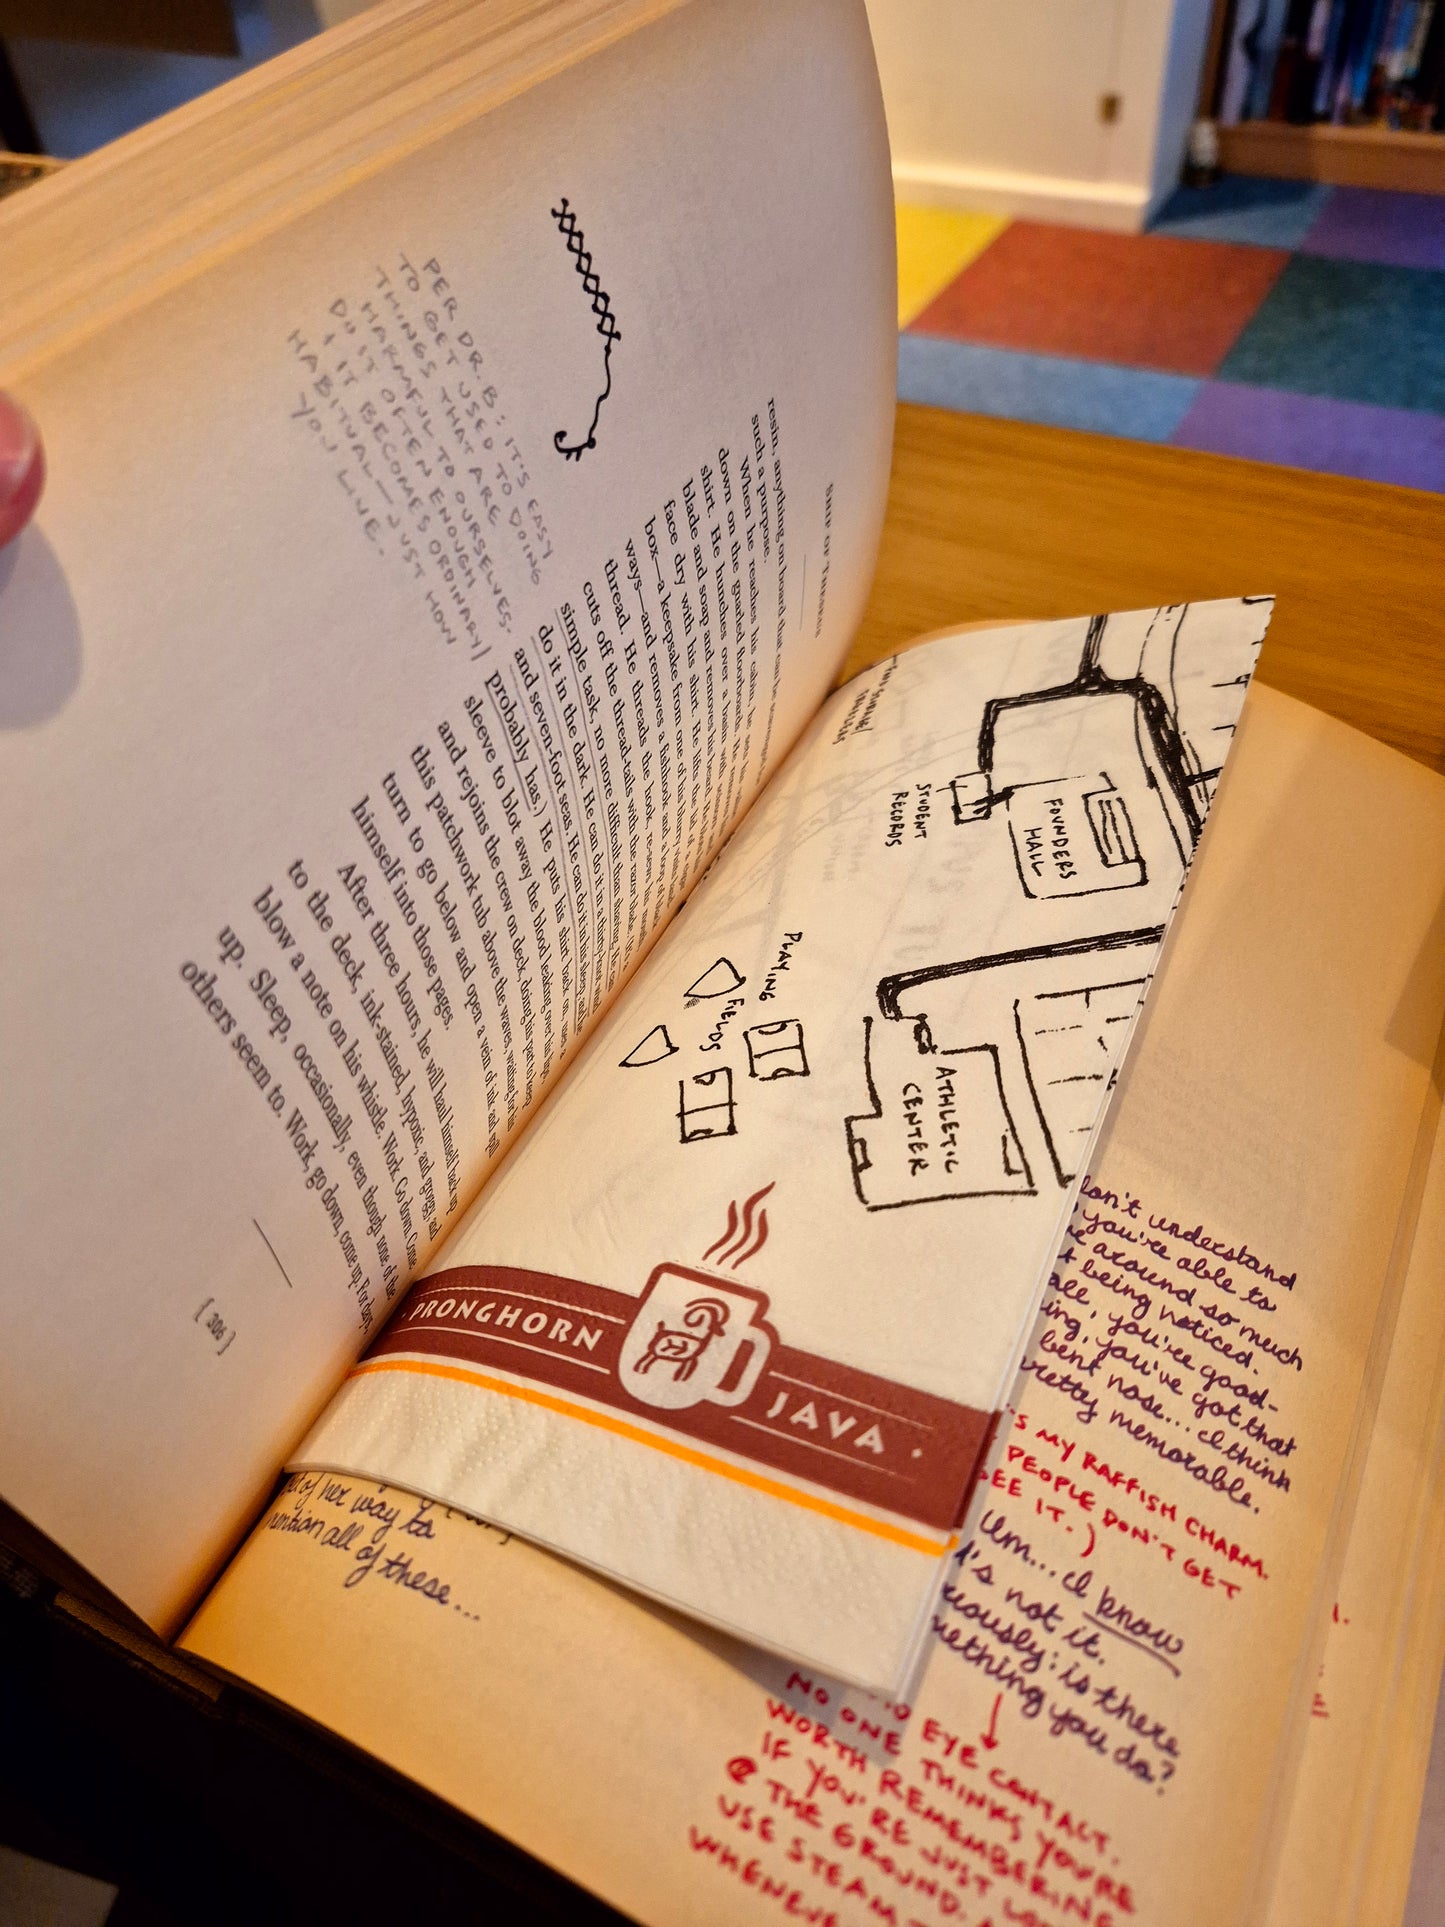 PER DR. B: IT'S EASY
TO GET USED TO DOING
THINGS THAT ARE
HARMFUL TO OURSELVES.
DO IT OFTEN ENOUGH
& IT BECOMES ORDINARY/
HABITUAL—JUST HOW
YOU LIVE.
SHIP OF THESEUS
resin, anything on board that can be
such a purpose.
When he reaches his cabin, he sets his
down on the gnarled floorboards. He
shirt. He hunches over a basin with
blade and soap and removes his beard. He
face dry with his shirt. He lifts the lid of a
box—a keepsake from one of his blurry
ways—and removes a fishhook and a loop of black
thread. He threads the hook, re-sews his
cuts off the thread-tails with the razor blade. (It's a
simple task, no more difficult than shaving. He can
do it in the dark. He can do it in a thirty-knot wind
and seven-foot seas. He can do it in his sleep, and he
probably has.) He puts his shirt back on, uses a
sleeve to blot away the blood leaking over his lips,
and rejoins the crew on deck, doing his part to keep
this patchwork tub above the waves, waiting for his
turn to go below and open a vein of ink and spill
himself into those pages.
After three hours, he will haul himself back up
to the deck, ink-stained, hypoxic, and groggy, and
blow a note on his whistle. Work. Go down. Come
up. Sleep, occasionally, even though none of the
others seem to. Work, go down, come up. For days,
[ 306 ]
STUDENT
RECORDS
FOUNDERS
HALL
PLAYING
FIELDS
ATHLETIC
CENTER
PRONGHORN JAVA
of her way to
mention all of these...
don't understand
you're able to
around so much
being noticed.
you're good-
you've got that
bent nose... I think
pretty memorable.
MY RAFFISH CHARM.
PEOPLE DON'T GET
SEE IT.)
Um... I know
it's not it.
is there
something you do?
EYE CONTACT.
NO ONE THINKS YOU'RE
WORTH REMEMBERING
IF YOU'RE JUST
@ THE GROUND.
USE STEAM